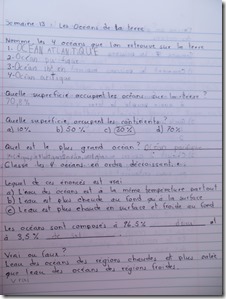 Semaine 13 : Les Océans de la terre
Nomme les 4 océans que l'on retrouve sur la terre
1. OCÉAN ATLANTIQUE
2. Océan
3. Océan
4. Océan
Quelle superficie occupent les océans sur la terre?
70,8%
Quelle superficie occupent les continents?
a) 10% b) 50% c) 30% d) 70%
Quel est le plus grand océan?
Classe les 4 océans en ordre décroissant.
Lequel de ces énoncés est vrai
a) L'eau des océans est à la même température partout
b) L'eau est plus chaude au fond qu'à la surface
c) L'eau est plus chaude en surface et froide au fond
Les océans sont composés à 96,5%
et à 3,5% de
Vrai ou faux?
L'eau des océans des régions chaudes est plus salée
que l'eau des océans des régions froides.